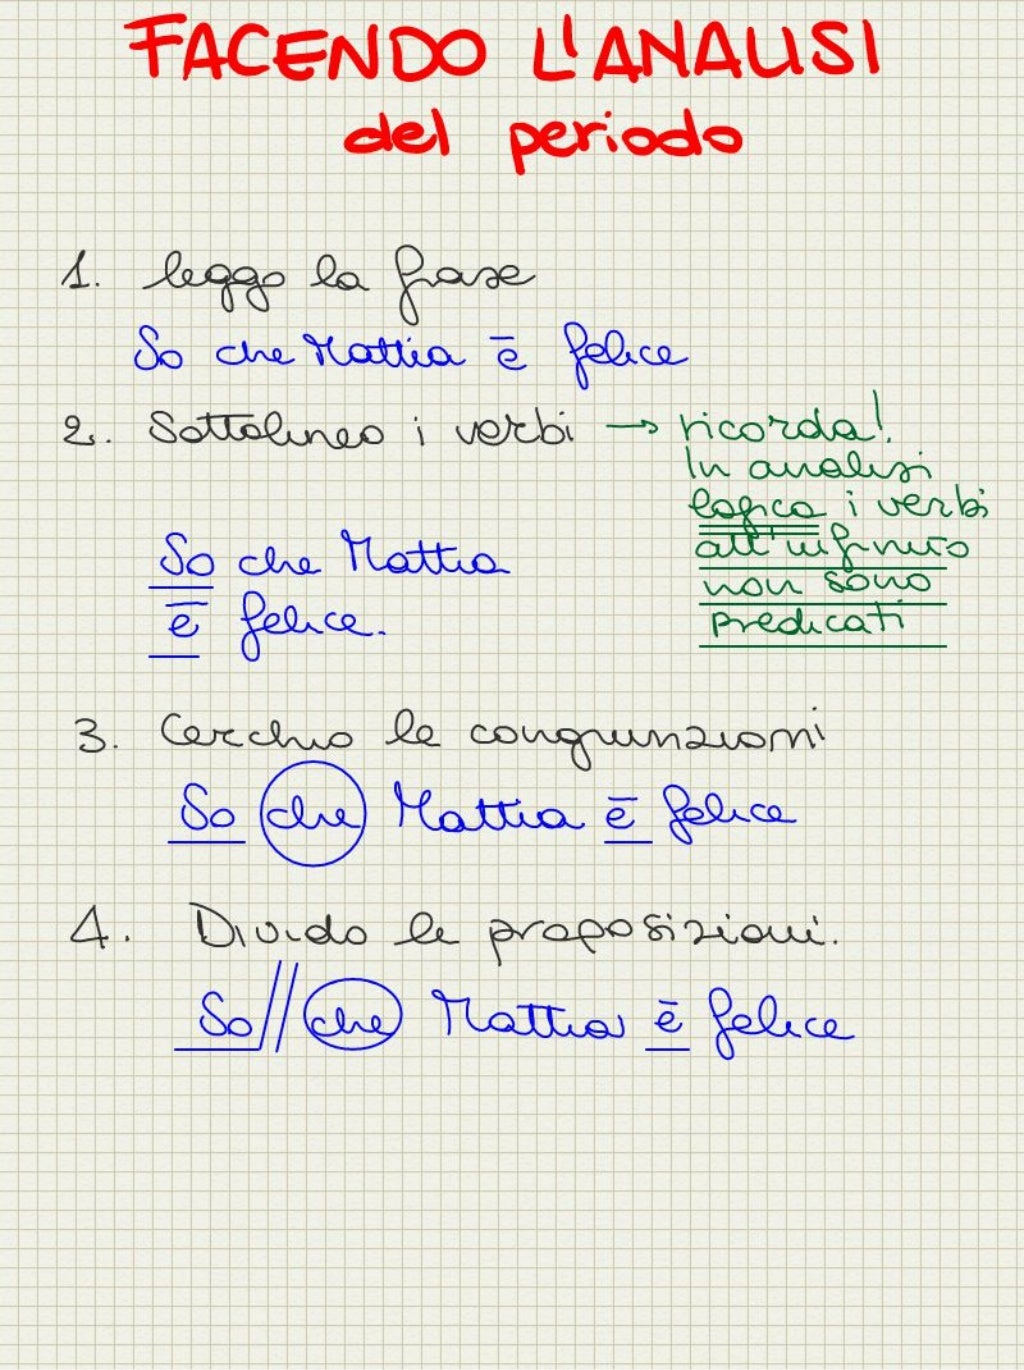 FACENDO L'ANALISI
del periodo
1. leggo la frase
So che Mattia è felice
2. Sottolineo i verbi → ricorda!
In analisi
logica i verbi
all'infinito
non sono
predicati
So che Mattia
è felice.
3. Cerchio le congiunzioni
So che Mattia è felice
4. Divido le proposizioni.
So // che Mattia è felice